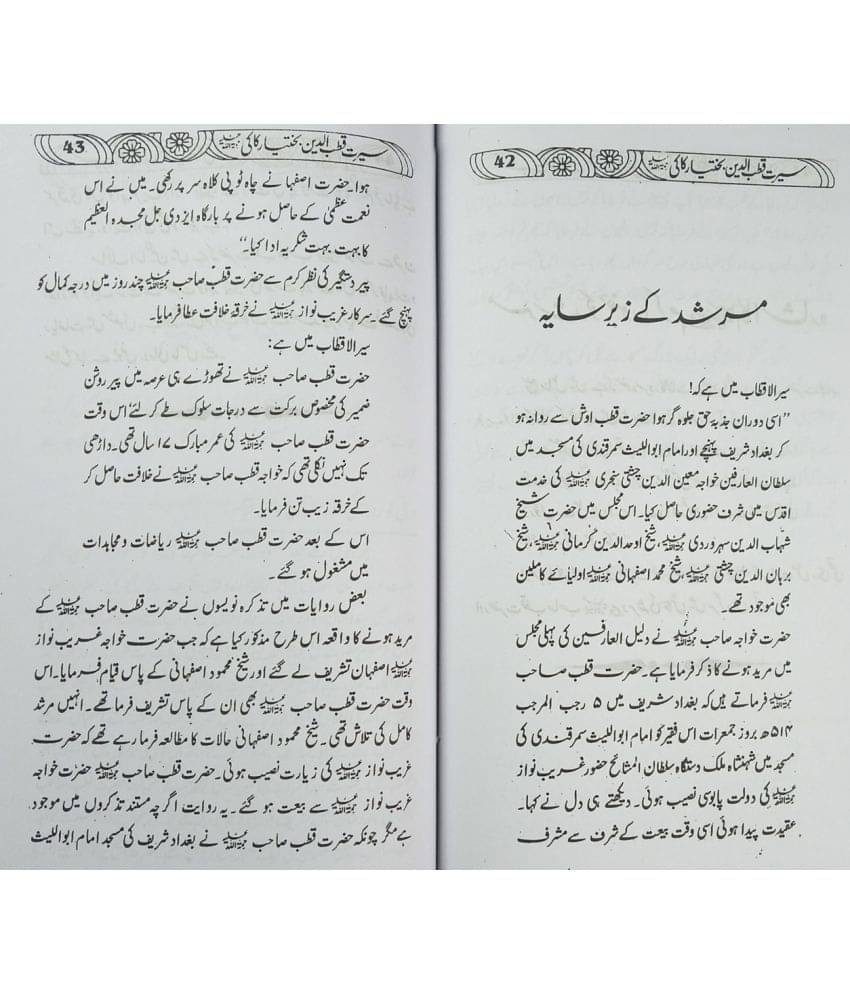 42 سیرت قطب الدین بختیار کاکی رحمۃ اللہ علیہ
مرشد کے زیر سایہ
سیر الاقطاب میں ہے کہ!
”اسی دوران جذبہ حق جلوہ گر ہوا حضرت قطب اوش سے روانہ ہو
کر بغداد شریف پہنچے اور امام ابواللیث سمرقندی کی مسجد میں
سلطان العارفین خواجہ معین الدین چشتی سنجری رحمۃ اللہ علیہ کی خدمت
اقدس میں شرف حضوری حاصل کیا۔ اس مجلس میں حضرت شیخ
شہاب الدین سہروردی رحمۃ اللہ علیہ، شیخ اوحد الدین کرمانی رحمۃ اللہ علیہ، شیخ
برہان الدین چشتی رحمۃ اللہ علیہ، شیخ محمد اصفہانی رحمۃ اللہ علیہ اولیائے کاملین
بھی موجود تھے۔
حضرت خواجہ صاحب رحمۃ اللہ علیہ نے دلیل العارفین کی پہلی مجلس
میں مرید ہونے کا ذکر فرمایا ہے۔ حضرت قطب صاحب
رحمۃ اللہ علیہ فرماتے ہیں کہ بغداد شریف میں ۵ رجب المرجب
۵۱۴ھ بروز جمعرات اس فقیر کو امام ابواللیث سمرقندی کی
مسجد میں شہنشاہ ملک دستگاہ سلطان المشائخ حضور غریب نواز
رحمۃ اللہ علیہ کی دولت پابوسی نصیب ہوئی۔ دیکھتے ہی دل نے کہا۔
عقیدت پیدا ہوئی اسی وقت بیعت کے شرف سے مشرف
43 سیرت قطب الدین بختیار کاکی رحمۃ اللہ علیہ
ہوا۔ حضرت اصفہا نے چاہ ٹوپی کلاہ سر پر رکھی۔ میں نے اس
نعمت عظمیٰ کے حاصل ہونے پر بارگاہ ایزدی جل مجدہ العظیم
کا بہت بہت شکریہ ادا کیا۔“
پیر دستگیر کی نظر کرم سے حضرت قطب صاحب رحمۃ اللہ علیہ چند روز میں درجہ کمال کو
پہنچ گئے۔ سرکار غریب نواز رحمۃ اللہ علیہ نے خرقہ خلافت عطا فرمایا۔
سیر الاقطاب میں ہے:
حضرت قطب صاحب رحمۃ اللہ علیہ نے تھوڑے ہی عرصہ میں پیر روشن
ضمیر کی مخصوص برکت سے درجات سلوک طے کر لئے‘ اس وقت
حضرت قطب صاحب رحمۃ اللہ علیہ کی عمر مبارک ۱۷ سال تھی۔ داڑھی
تک نہیں نکلی تھی کہ خواجہ قطب صاحب رحمۃ اللہ علیہ نے خلافت حاصل کر
کے خرقہ زیب تن فرمایا۔
اس کے بعد حضرت قطب صاحب رحمۃ اللہ علیہ ریاضات و مجاہدات
میں مشغول ہو گئے۔
بعض روایات میں تذکرہ نویسوں نے حضرت قطب صاحب رحمۃ اللہ علیہ کے
مرید ہونے کا واقعہ اس طرح مذکور کیا ہے کہ جب حضرت خواجہ غریب نواز
رحمۃ اللہ علیہ اصفہان تشریف لے گئے اور شیخ محمود اصفہانی کے پاس قیام فرمایا۔ اس
وقت حضرت قطب صاحب رحمۃ اللہ علیہ بھی ان کے پاس تشریف فرما تھے۔ انہیں مرشد
کامل کی تلاش تھی۔ شیخ محمود اصفہانی حالات کا مطالعہ فرما رہے تھے کہ حضرت
غریب نواز رحمۃ اللہ علیہ کی زیارت نصیب ہوئی۔ حضرت قطب صاحب رحمۃ اللہ علیہ حضرت خواجہ
غریب نواز رحمۃ اللہ علیہ سے بیعت ہو گئے۔ یہ روایت اگرچہ مستند تذکروں میں موجود
ہے مگر چونکہ حضرت قطب صاحب رحمۃ اللہ علیہ نے بغداد شریف کی مسجد امام ابواللیث